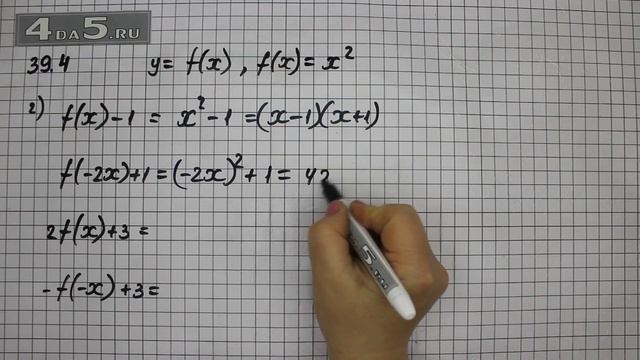 4DA5.RU
39.4 y = f(x), f(x) = x²
2) f(x)-1 = x²-1 = (x-1)(x+1)
f(-2x)+1 = (-2x)²+1 = 4
2f(x)+3 =
-f(-x)+3 =